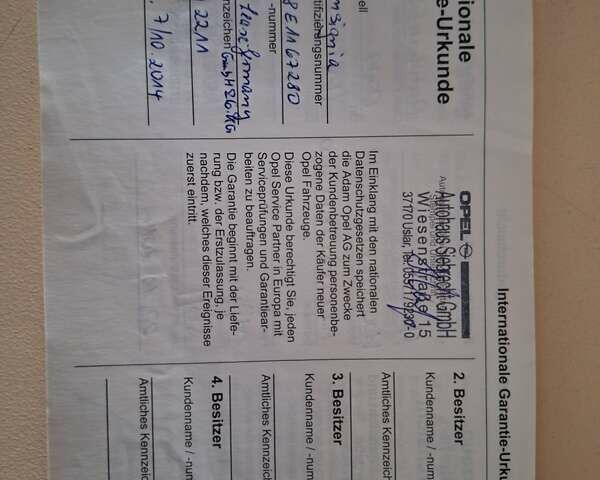 ionale
e-Urkunde
ell
nsignia
tifizierungsnummer
8E1167280
-nummer
nnzeichen
2211
7/10.2014
OPEL
Autohaus Siebrecht GmbH
Wiesenstraße 15
37170 Uslar, Tel.
Im Einklang mit den nationalen
Datenschutzgesetzen speichert
die Adam Opel AG zum Zwecke
der Kundenbetreuung personenbe-
zogene Daten der Käufer neuer
Opel Fahrzeuge.
Diese Urkunde berechtigt Sie, jeden
Opel Service Partner in Europa mit
Serviceprüfungen und Garantiear-
beiten zu beauftragen.
Die Garantie beginnt mit der Liefe-
rung bzw. der Erstzulassung, je
nachdem, welches dieser Ereignisse
zuerst eintritt.
Internationale Garantie-Urku
2. Besitzer
Kundenname / -num
Amtliches Kennzeic
3. Besitzer
Kundenname / -num
Amtliches Kennzeic
4. Besitzer
Kundenname / -num
Amtliches Kennzeich